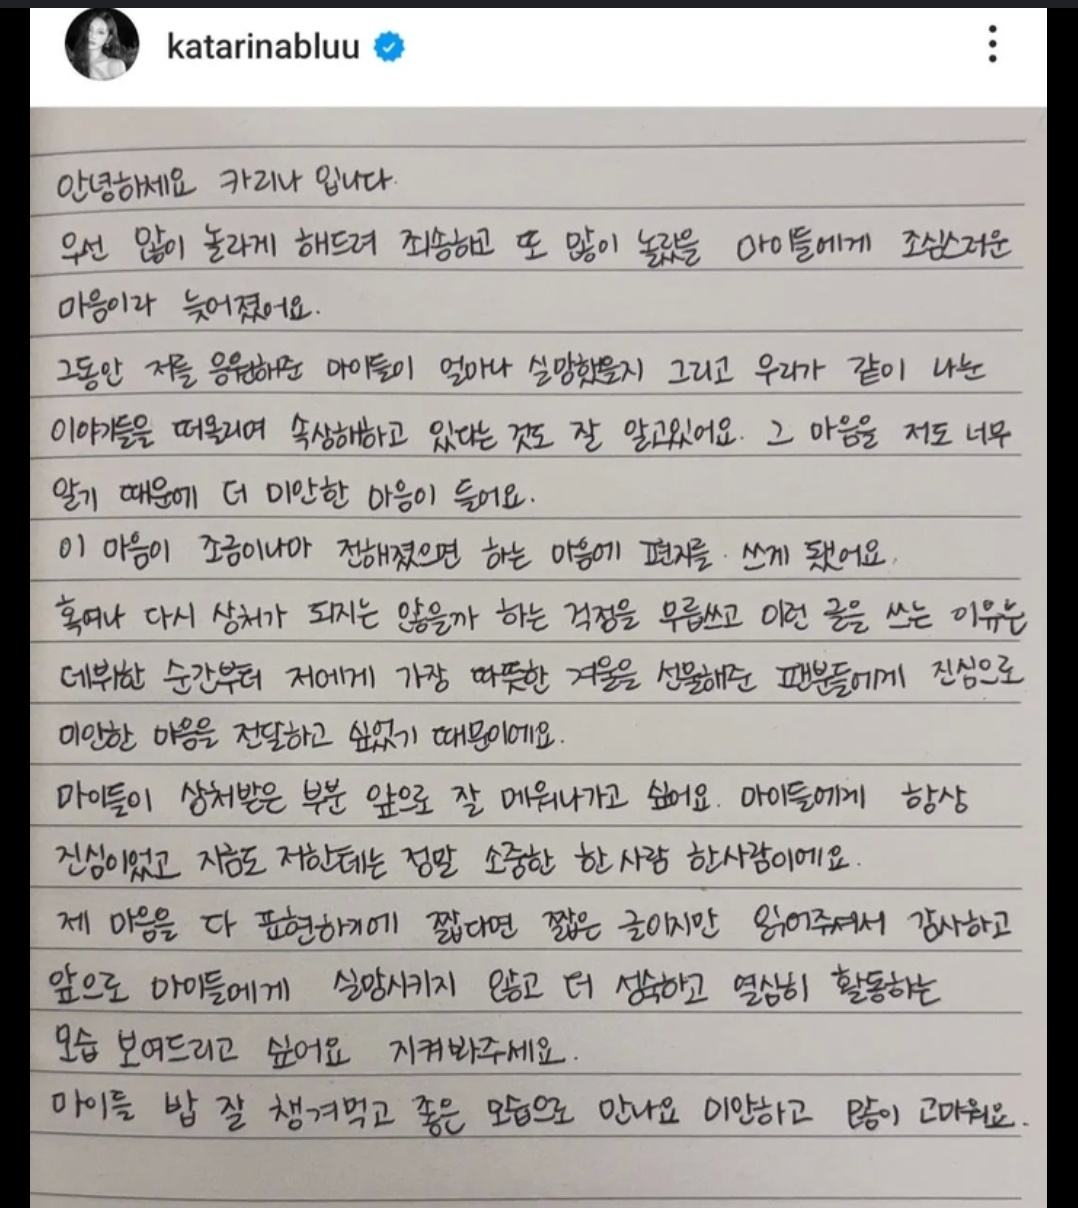 katarinabluu
안녕하세요 카리나 입니다.
우선 많이 놀라게 해드려 죄송하고 또 많이 놀랐을 마이들에게 조심스러운
마음이라 늦어졌어요.
그동안 저를 응원해준 마이들이 얼마나 실망했을지 그리고 우리가 같이 나눈
이야기들을 떠올리며 속상해하고 있다는 것도 잘 알고있어요. 그 마음을 저도 너무
알기 때문에 더 미안한 마음이 들어요.
이 마음이 조금이나마 전해졌으면 하는 마음에 편지를 쓰게 됐어요.
혹여나 다시 상처가 되지는 않을까 하는 걱정을 무릅쓰고 이런 글을 쓰는 이유는
데뷔한 순간부터 저에게 가장 따뜻한 겨울을 선물해준 팬분들에게 진심으로
미안한 마음을 전달하고 싶었기 때문이에요.
마이들이 상처받은 부분 앞으로 잘 메워나가고 싶어요. 마이들에게 항상
진심이었고 지금도 저한테는 정말 소중한 한 사람 한사람이에요.
제 마음을 다 표현하기에 짧다면 짧은 글이지만 읽어주셔서 감사하고
앞으로 마이들에게 실망시키지 않고 더 성숙하고 열심히 활동하는
모습 보여드리고 싶어요 지켜봐주세요.
마이들 밥 잘 챙겨먹고 좋은 모습으로 만나요 미안하고 많이 고마워요.